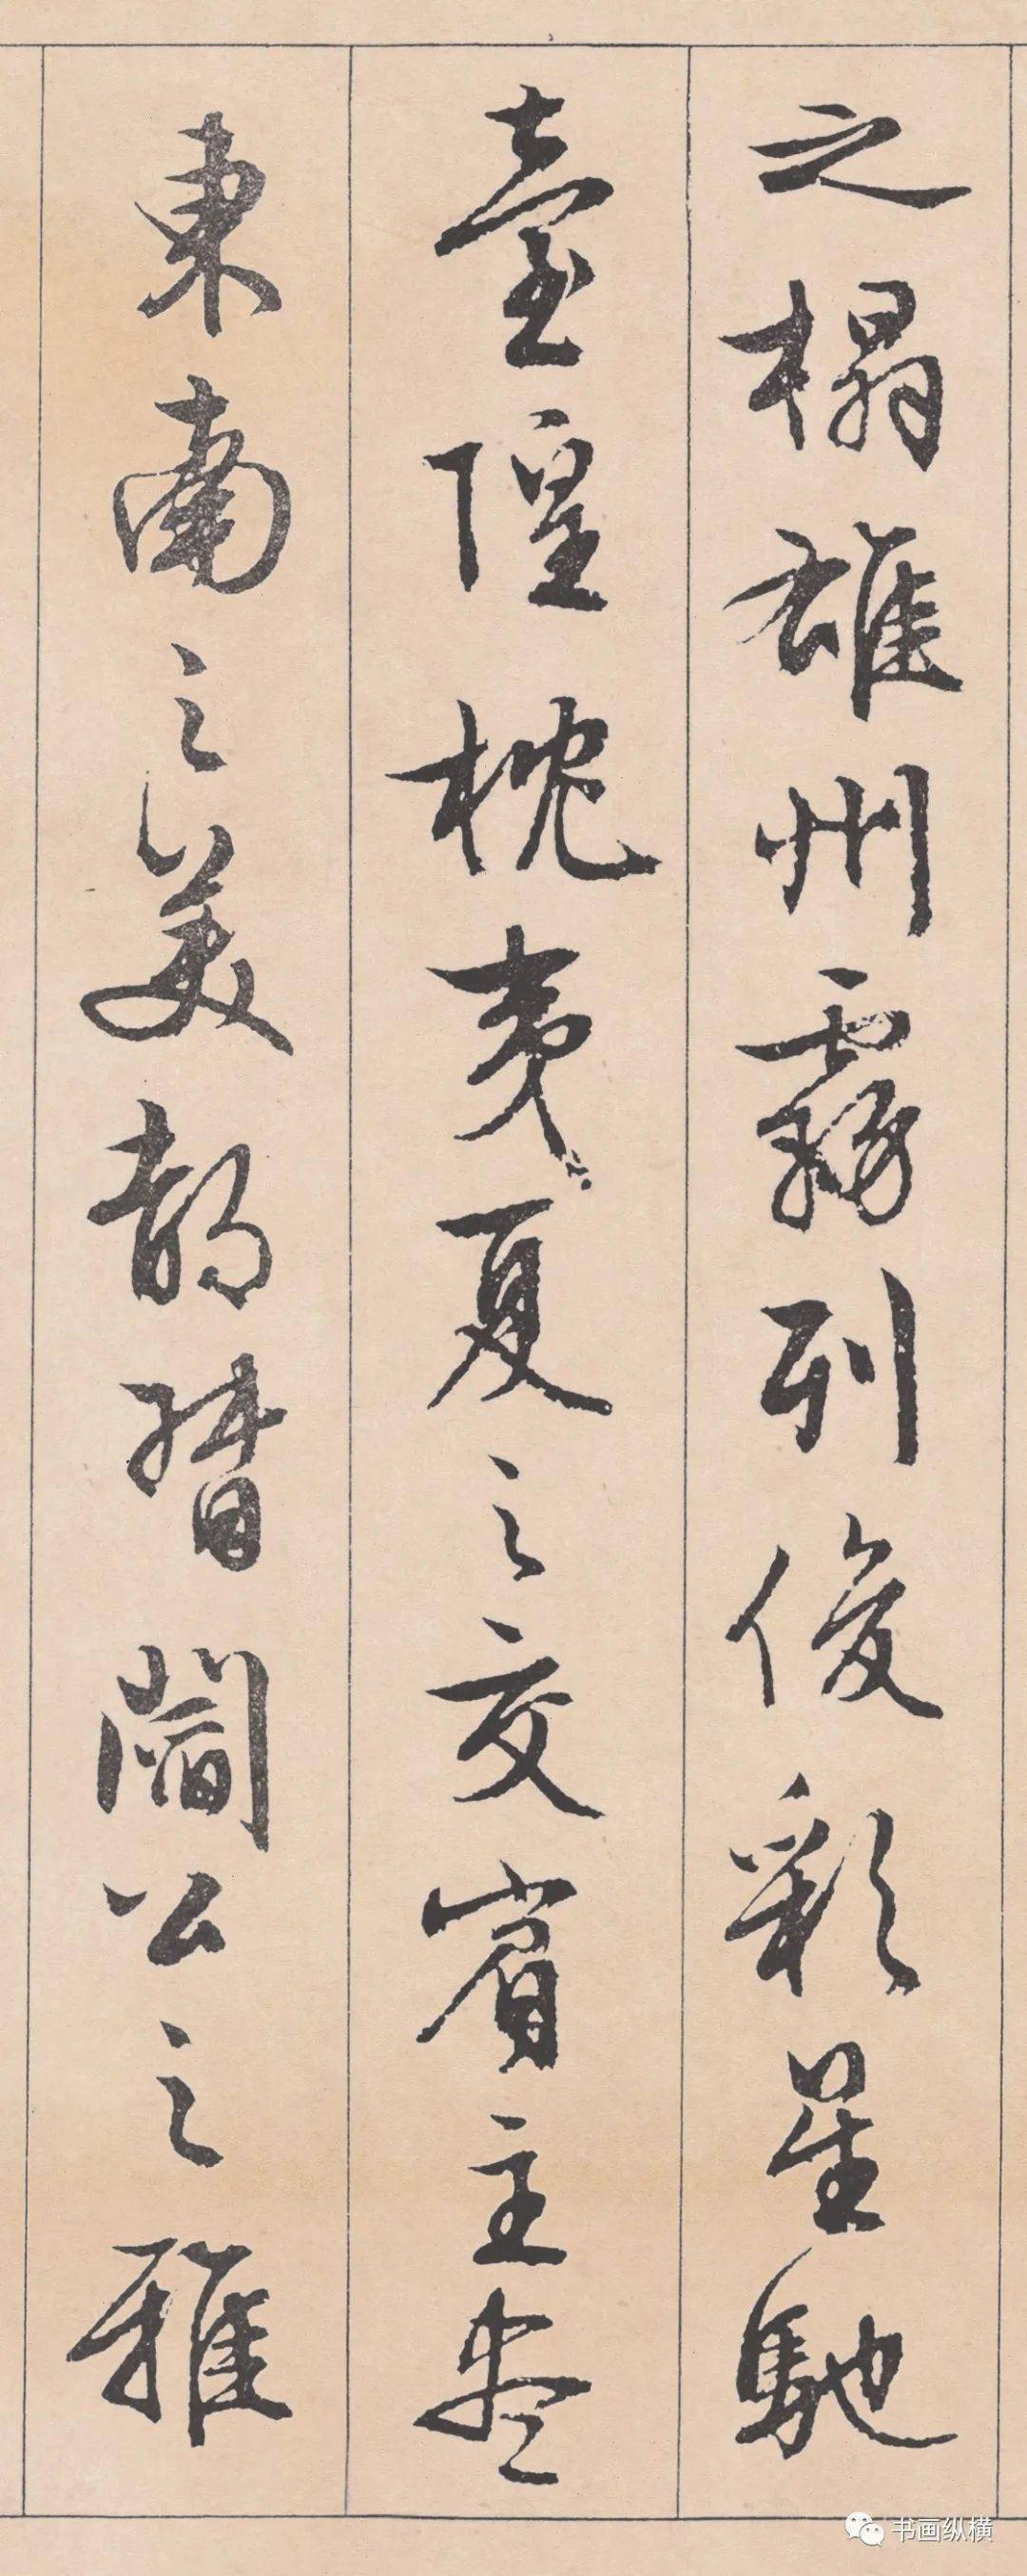 之榻雄州霧列俊彩星馳
臺隍枕夷夏之交賓主盡
東南之美都督閻公之雅
书画纵横